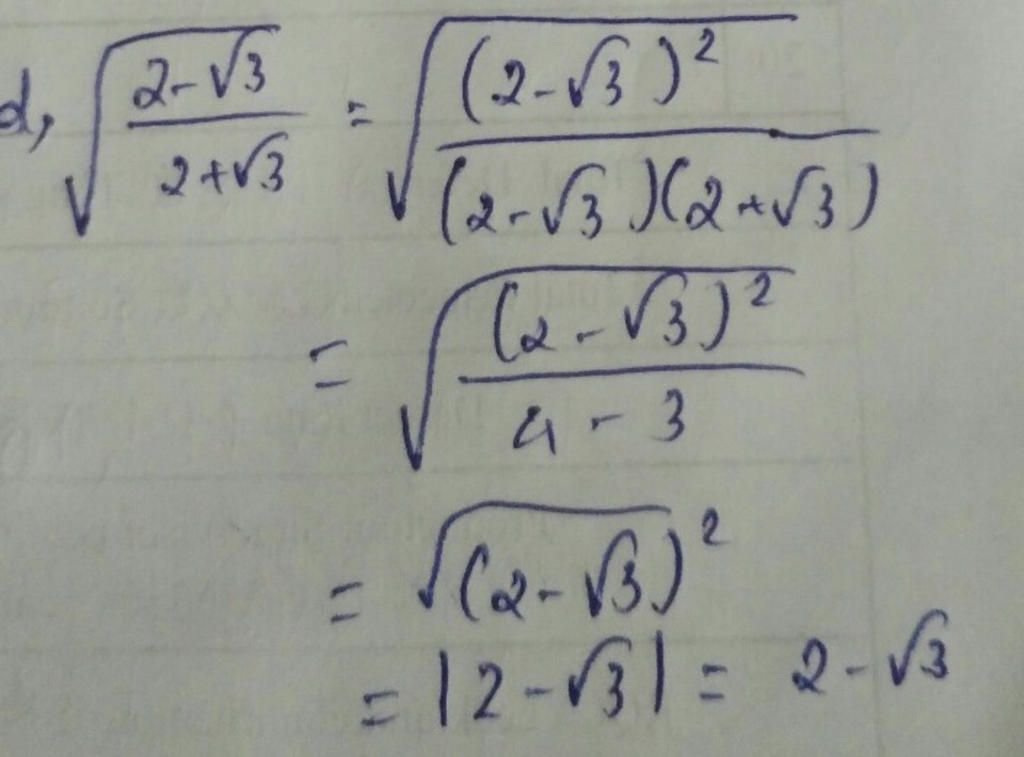 d, √((2-√3)/(2+√3)) = √((2-√3)²/((2-√3)(2+√3)))
= √((2-√3)²/(4-3))
= √(2-√3)²
= |2-√3| = 2-√3